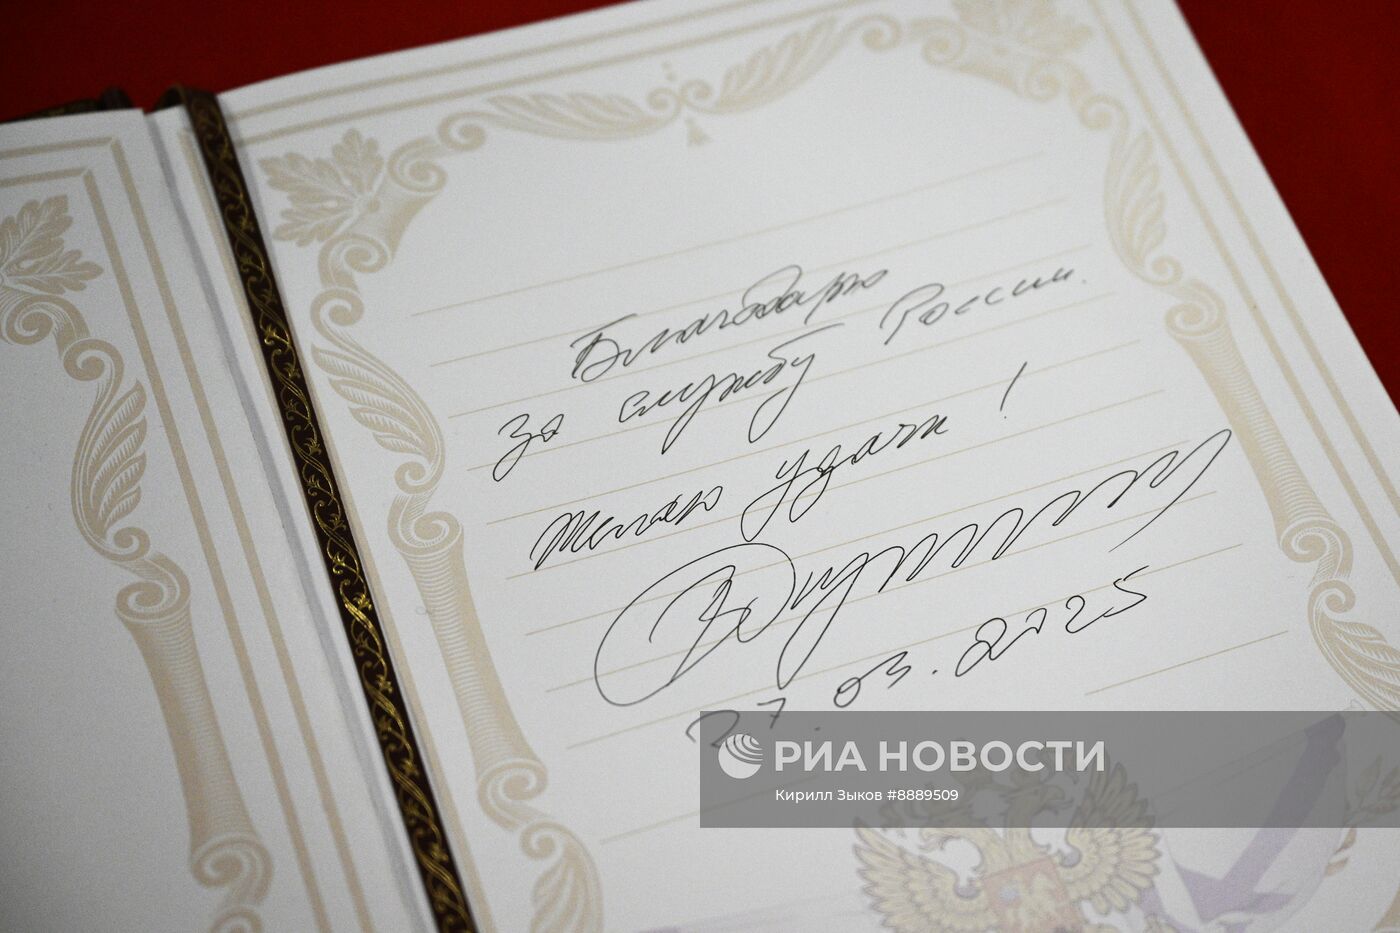 Благодарю
за службу России.
Желаю удачи!
27.03.2025
РИА НОВОСТИ
Кирилл Зыков #8889509